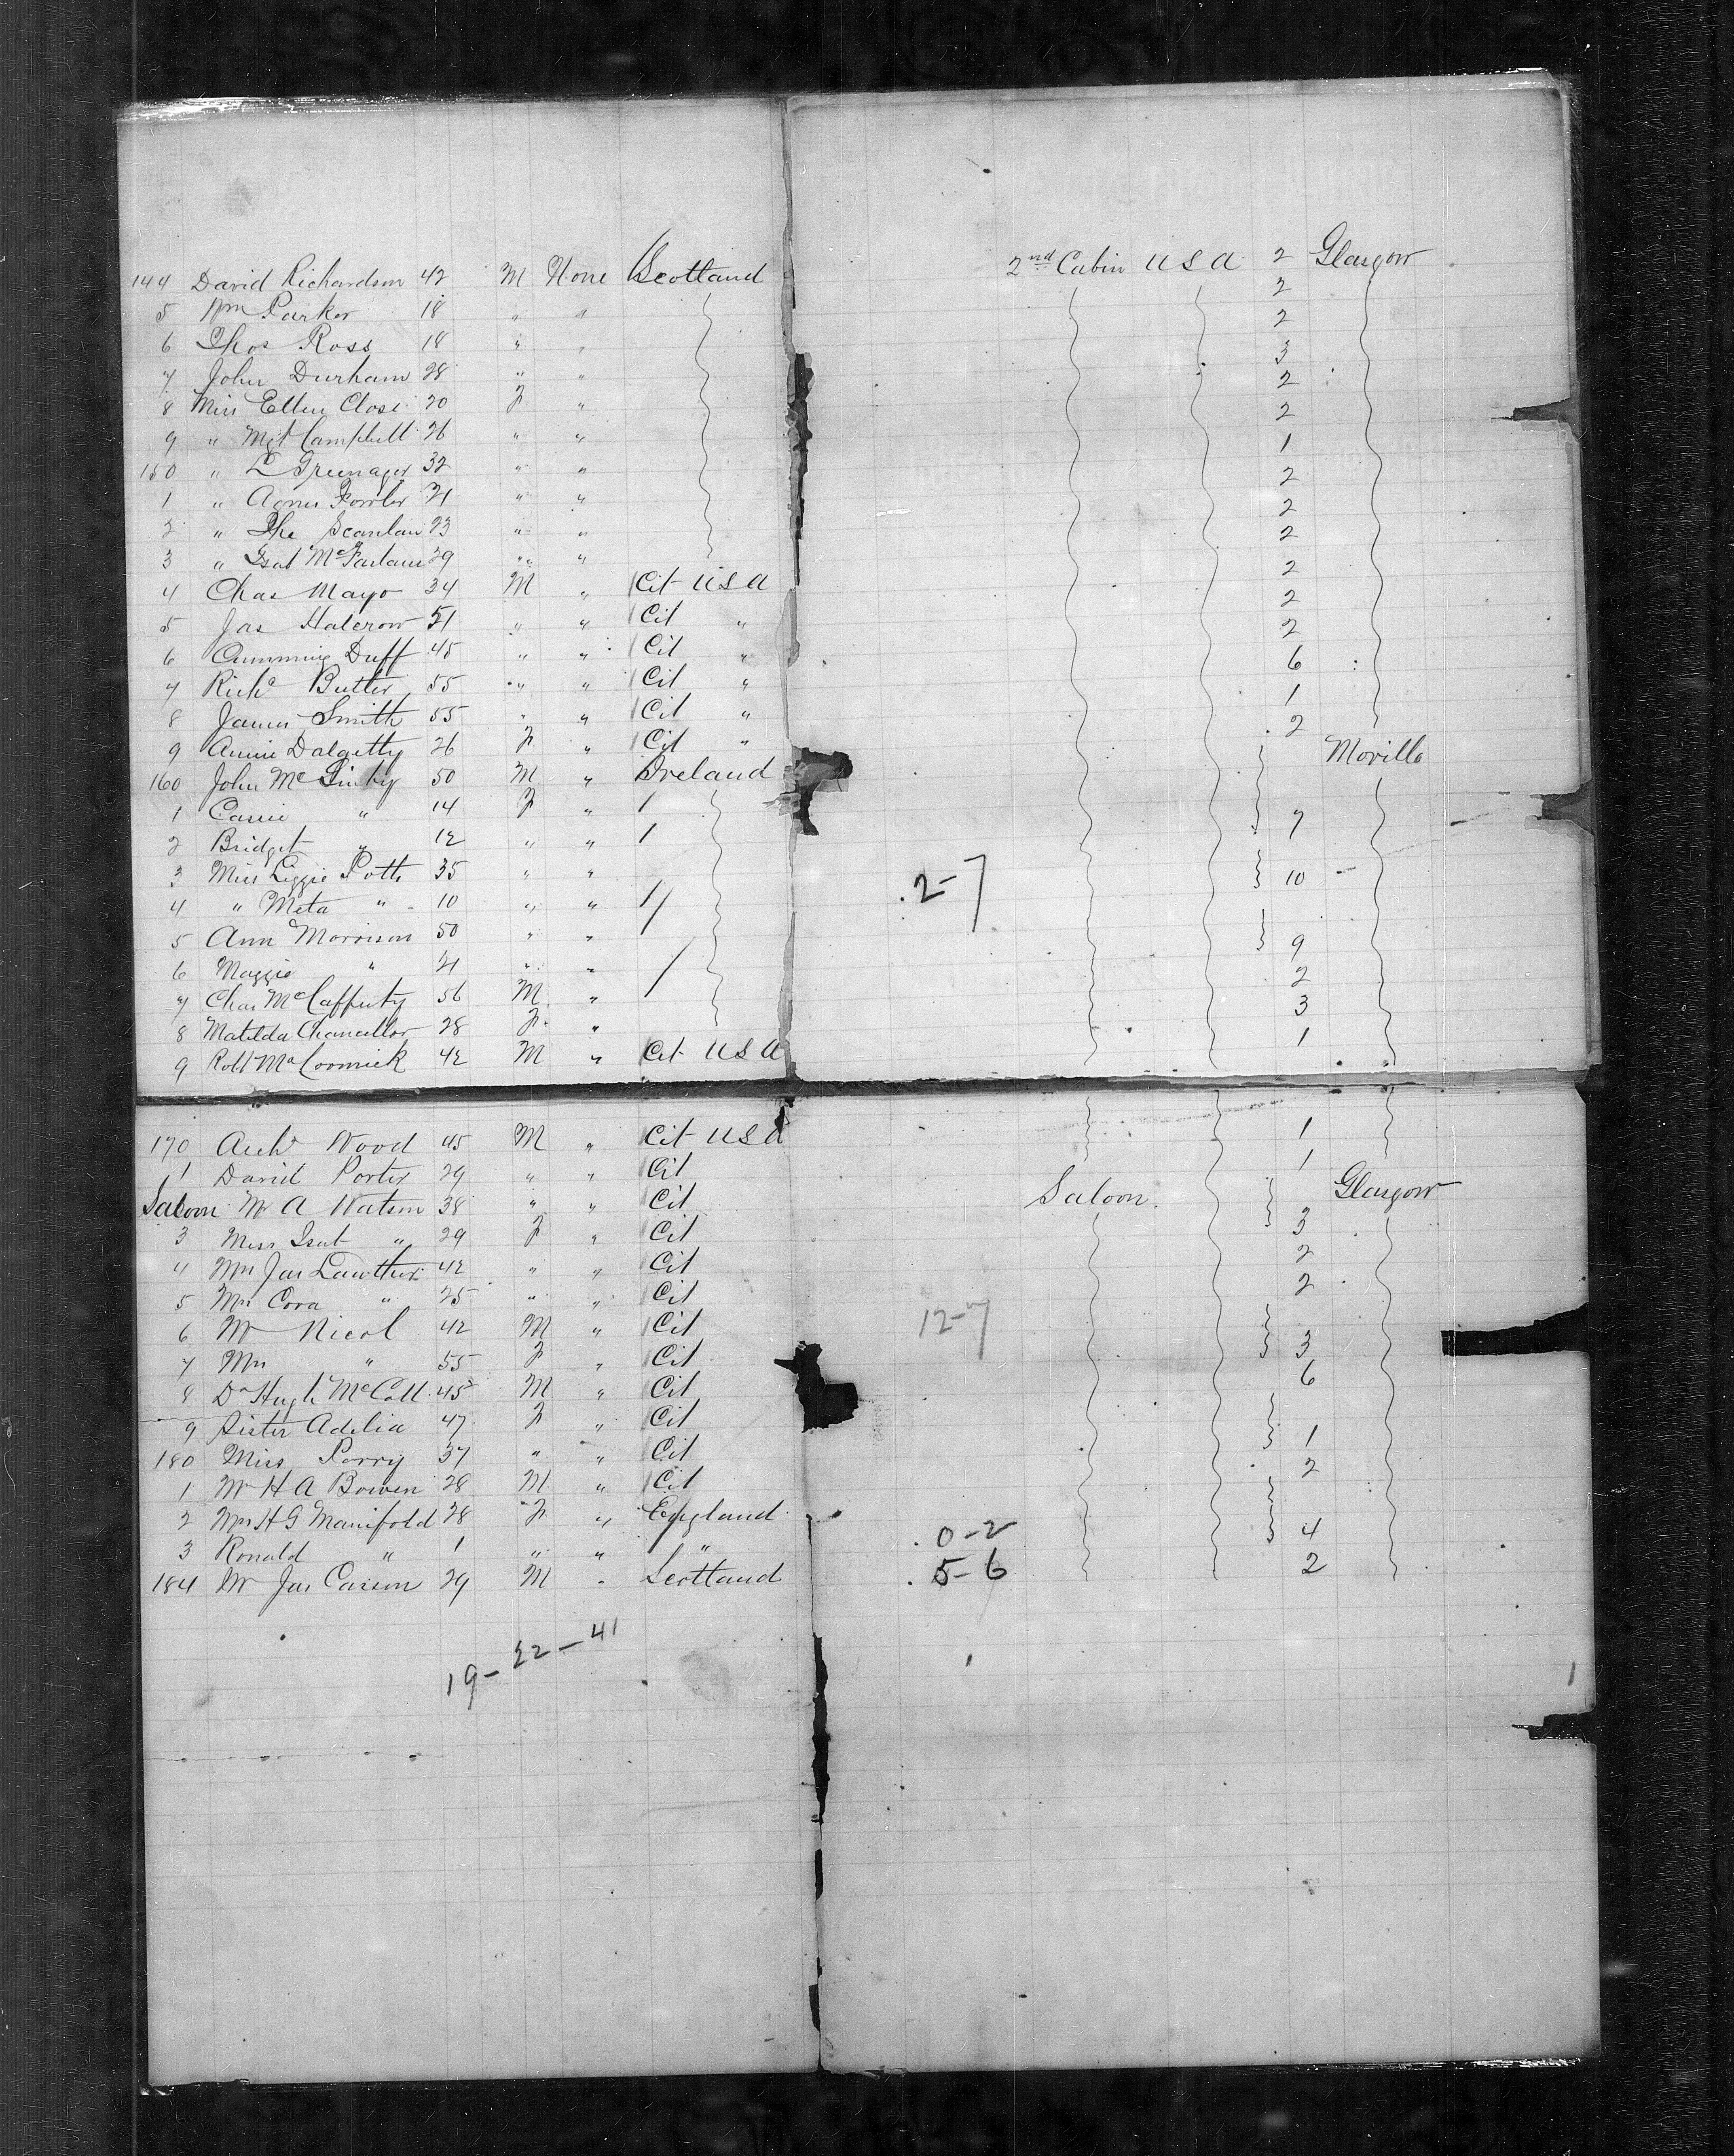 144 David Richardson 42 M None Scotland 2nd Cabin USA 2 Glasgow
5 Wm Parker 18 " " 2
6 Thos Ross 18 " " 2
7 John Durham 28 " " 3
8 Miss Ellen Close 20 F " 2
9 " Mgt Campbell 26 " " 2
150 " L 32 " " 1
1 " Agnes Fowler 21 " " 2
2 " Scanlan 23 " " 2
3 " Isab McFarlane 29 " " 2
4 Chas Mayo 34 M " Cit USA 2
5 Jas Halcrow 51 " " Cit " 2
6 Cumming Duff 45 " " Cit " 2
7 Richd Butler 55 " " Cit " 6
8 James Smith 55 " " Cit " 1
9 Annie Dalgetty 26 F " Cit " 2
160 John Mc 50 M " Ireland Moville
1 Carrie " 14 F "
2 Bridget " 12 " " 7
3 Miss Lizzie Potts 35 " "
4 " Meta " 10 " " 2-7 10
5 Ann Morrison 50 " "
6 Maggie " 21 " " 9
7 Chas McCafferty 56 M " 2
8 Matilda Chancellor 28 F " 3
9 Robt McCormick 42 M " Cit USA 1
170 Archd Wood 45 M " Cit USA 1
1 David Porter 29 " " Cit 1
Saloon Mr A Watson 38 " " Cit Saloon Glasgow
3 Miss Isab " 29 F " Cit 3
4 Mrs Jas Lawther 42 " " Cit 2
5 Mrs Cora " 25 " " Cit 2
6 Mr Nicol 42 M " Cit 12-7
7 Mrs " 55 F " Cit 3
8 Dr Hugh McColl 45 M " Cit 6
9 Sister Adelia 47 F " Cit
180 Miss Parry 37 " " Cit 1
1 Mr H A Bowen 28 M " Cit 2
2 Mrs H G Manifold 28 F " England
3 Ronald " 1 " " " 0-2 4
184 Mr Jas Carson 29 M " Scotland 5-6 2
19-22-41